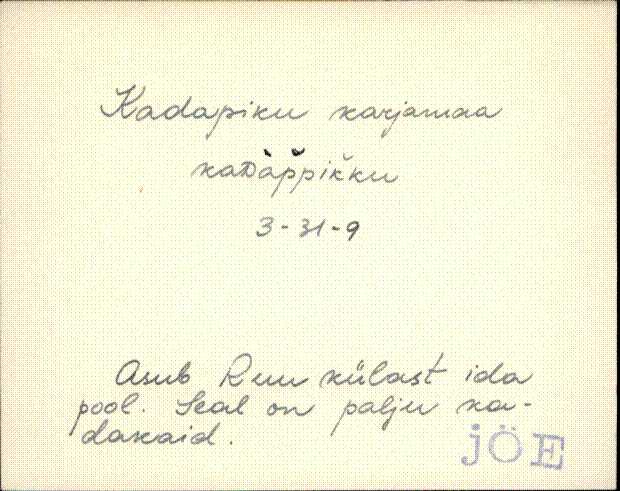 Kadapiku karjamaa
kaᴅàp̆pik̆ku
3-31-9
Asub Ruu külast ida
pool. Seal on palju ka-
dakaid.
JÕE